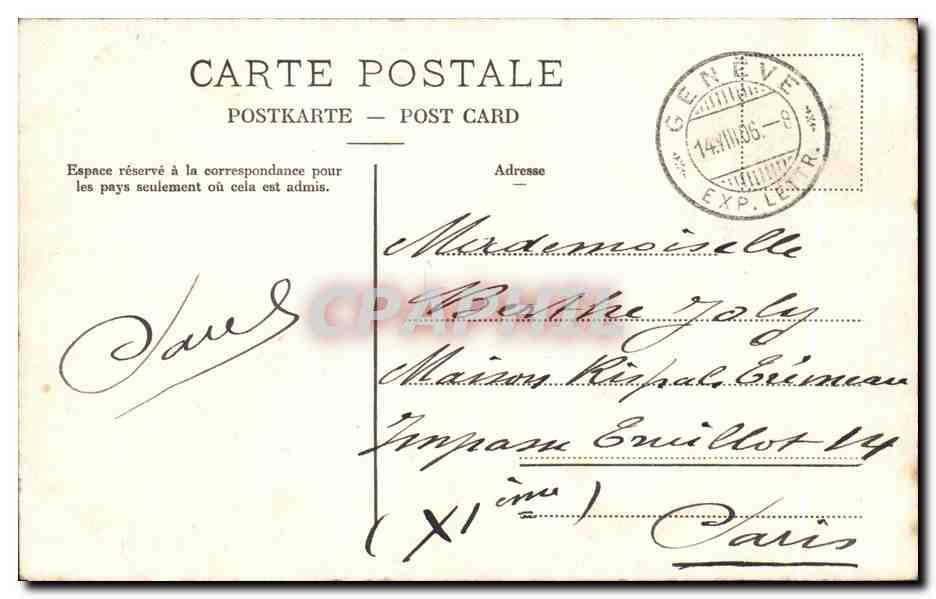 CARTE POSTALE
POSTKARTE — POST CARD
GENÈVE
14.VIII.06.–8
EXP. LETTR.
Espace réservé à la correspondance pour
les pays seulement où cela est admis.
Adresse
Paul
Mademoiselle
Berthe Joly
Maison
Impasse 14
(XIème)
Paris
CPAPHIL